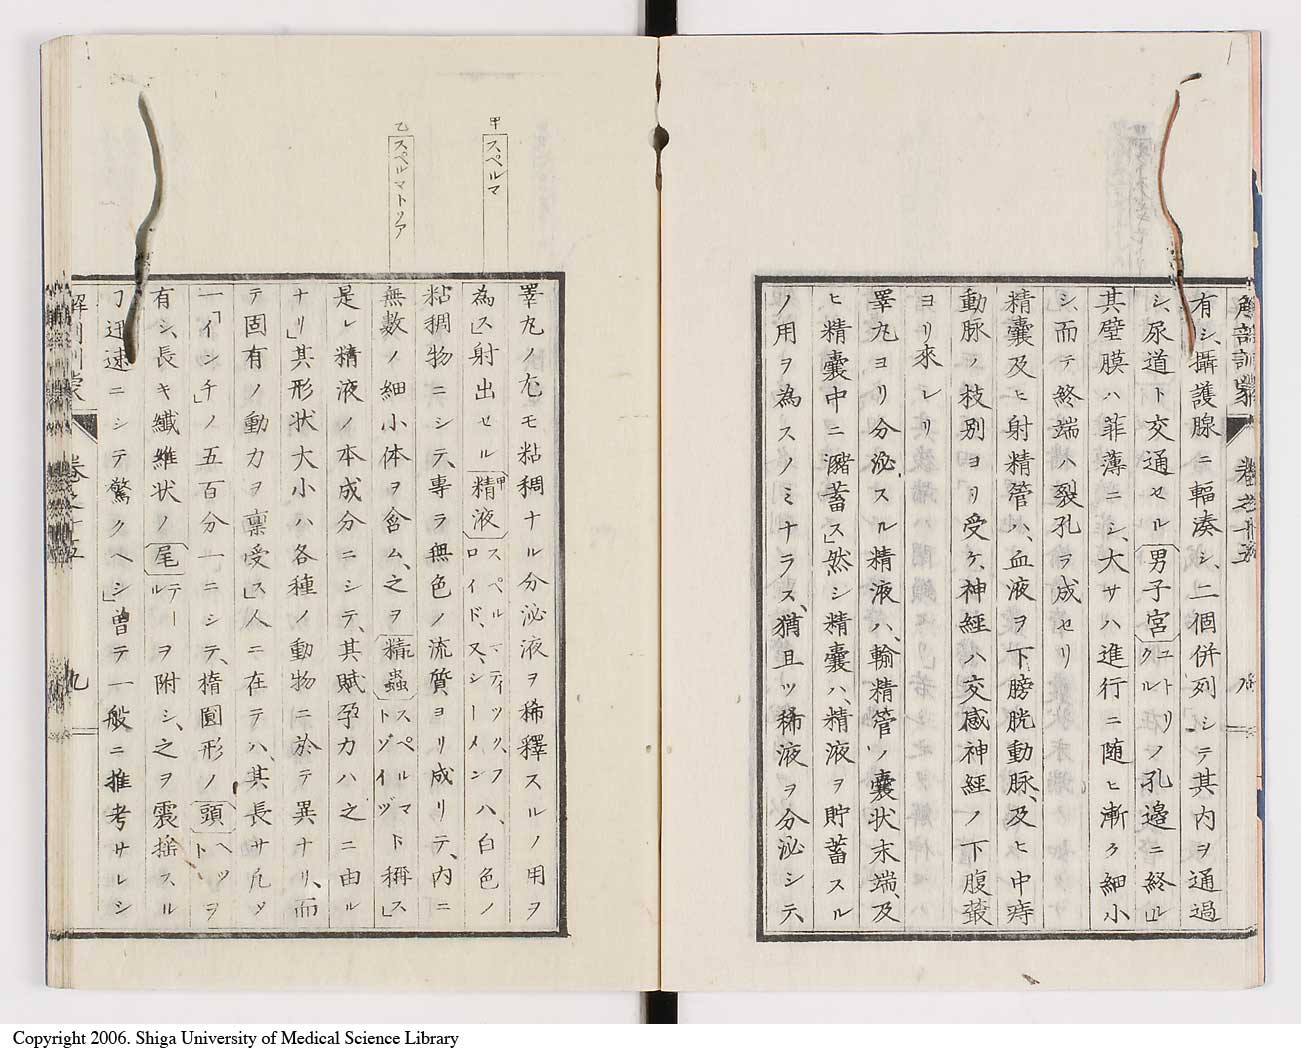 有シ、攝護腺ニ輻湊シ、二個併列シテ其内ヲ通過
シ、尿道ト交通セル男子宮ユトリクルリノ孔邊ニ終ル」
其壁膜ハ菲薄ニシ、大サハ進行ニ随ヒ漸ク細小
シ、而テ終端ハ裂孔ヲ成セリ
精嚢及ヒ射精管ハ、血液ヲ下膀胱動脉、及ヒ中痔
動脉ノ枝別ヨリ受ケ、神經ハ交感神經ノ下腹叢
ヨリ來レリ
睪丸ヨリ分泌スル精液ハ、輸精管ノ嚢状末端、及
ヒ精嚢中ニ瀦蓄ス」然シ精嚢ハ、精液ヲ貯蓄スル
ノ用ヲ為スノミナラス、猶且ツ稀液ヲ分泌シテ、
解剖訓蒙
巻之十五
甲 スペルマ
乙 スペルマトゾア
睪丸ノ尤モ粘稠ナル分泌液ヲ稀釋スルノ用ヲ
為ス」射出セル甲精液スペルマティック、フロイド、又、シーメンハ、白色ノ
粘稠物ニシテ、専ラ無色ノ流質ヨリ成リテ、内ニ
無數ノ細小体ヲ含ム、之ヲ乙精蟲スペルマトゾイヅト稱ス」
是レ精液ノ本成分ニシテ、其賦孕力ハ之ニ由ル
ナリ」其形状大小ハ各種ノ動物ニ於テ異ナリ、而
テ固有ノ動力ヲ禀受ス」人ニ在テハ、其長サ凡ソ
一「インチ」ノ五百分一ニシテ、橢圓形ノ頭ヘットヲ
有シ、長キ纎維状ノ尾テールヲ附シ、之ヲ震搖スル
丁迅速ニシテ驚クヘシ」曽テ一般ニ推考サレシ
解剖訓蒙
巻之十五
九
Copyright 2006. Shiga University of Medical Science Library